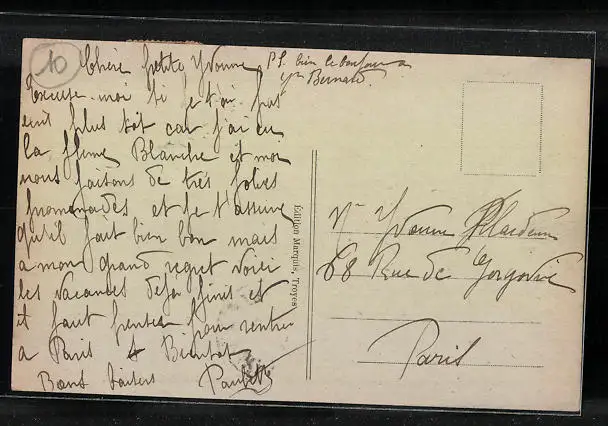 10
Chère petite Yvonne
Excuse-moi si je t'ai pas
écrit plus tôt car j'ai eu
la flemme Blanche et moi
nous faisons de très jolies
promenades et je t'assure
qu'il fait bien bon mais
a mon grand regret voici
les vacances déja finis et
il faut penser pour rentrer
a Paris Bientot
Bons baisers
P.S. bien le bonjour a
Bernard
Édition Marquis, Troyes
Yvonne
68 Rue de
Paris